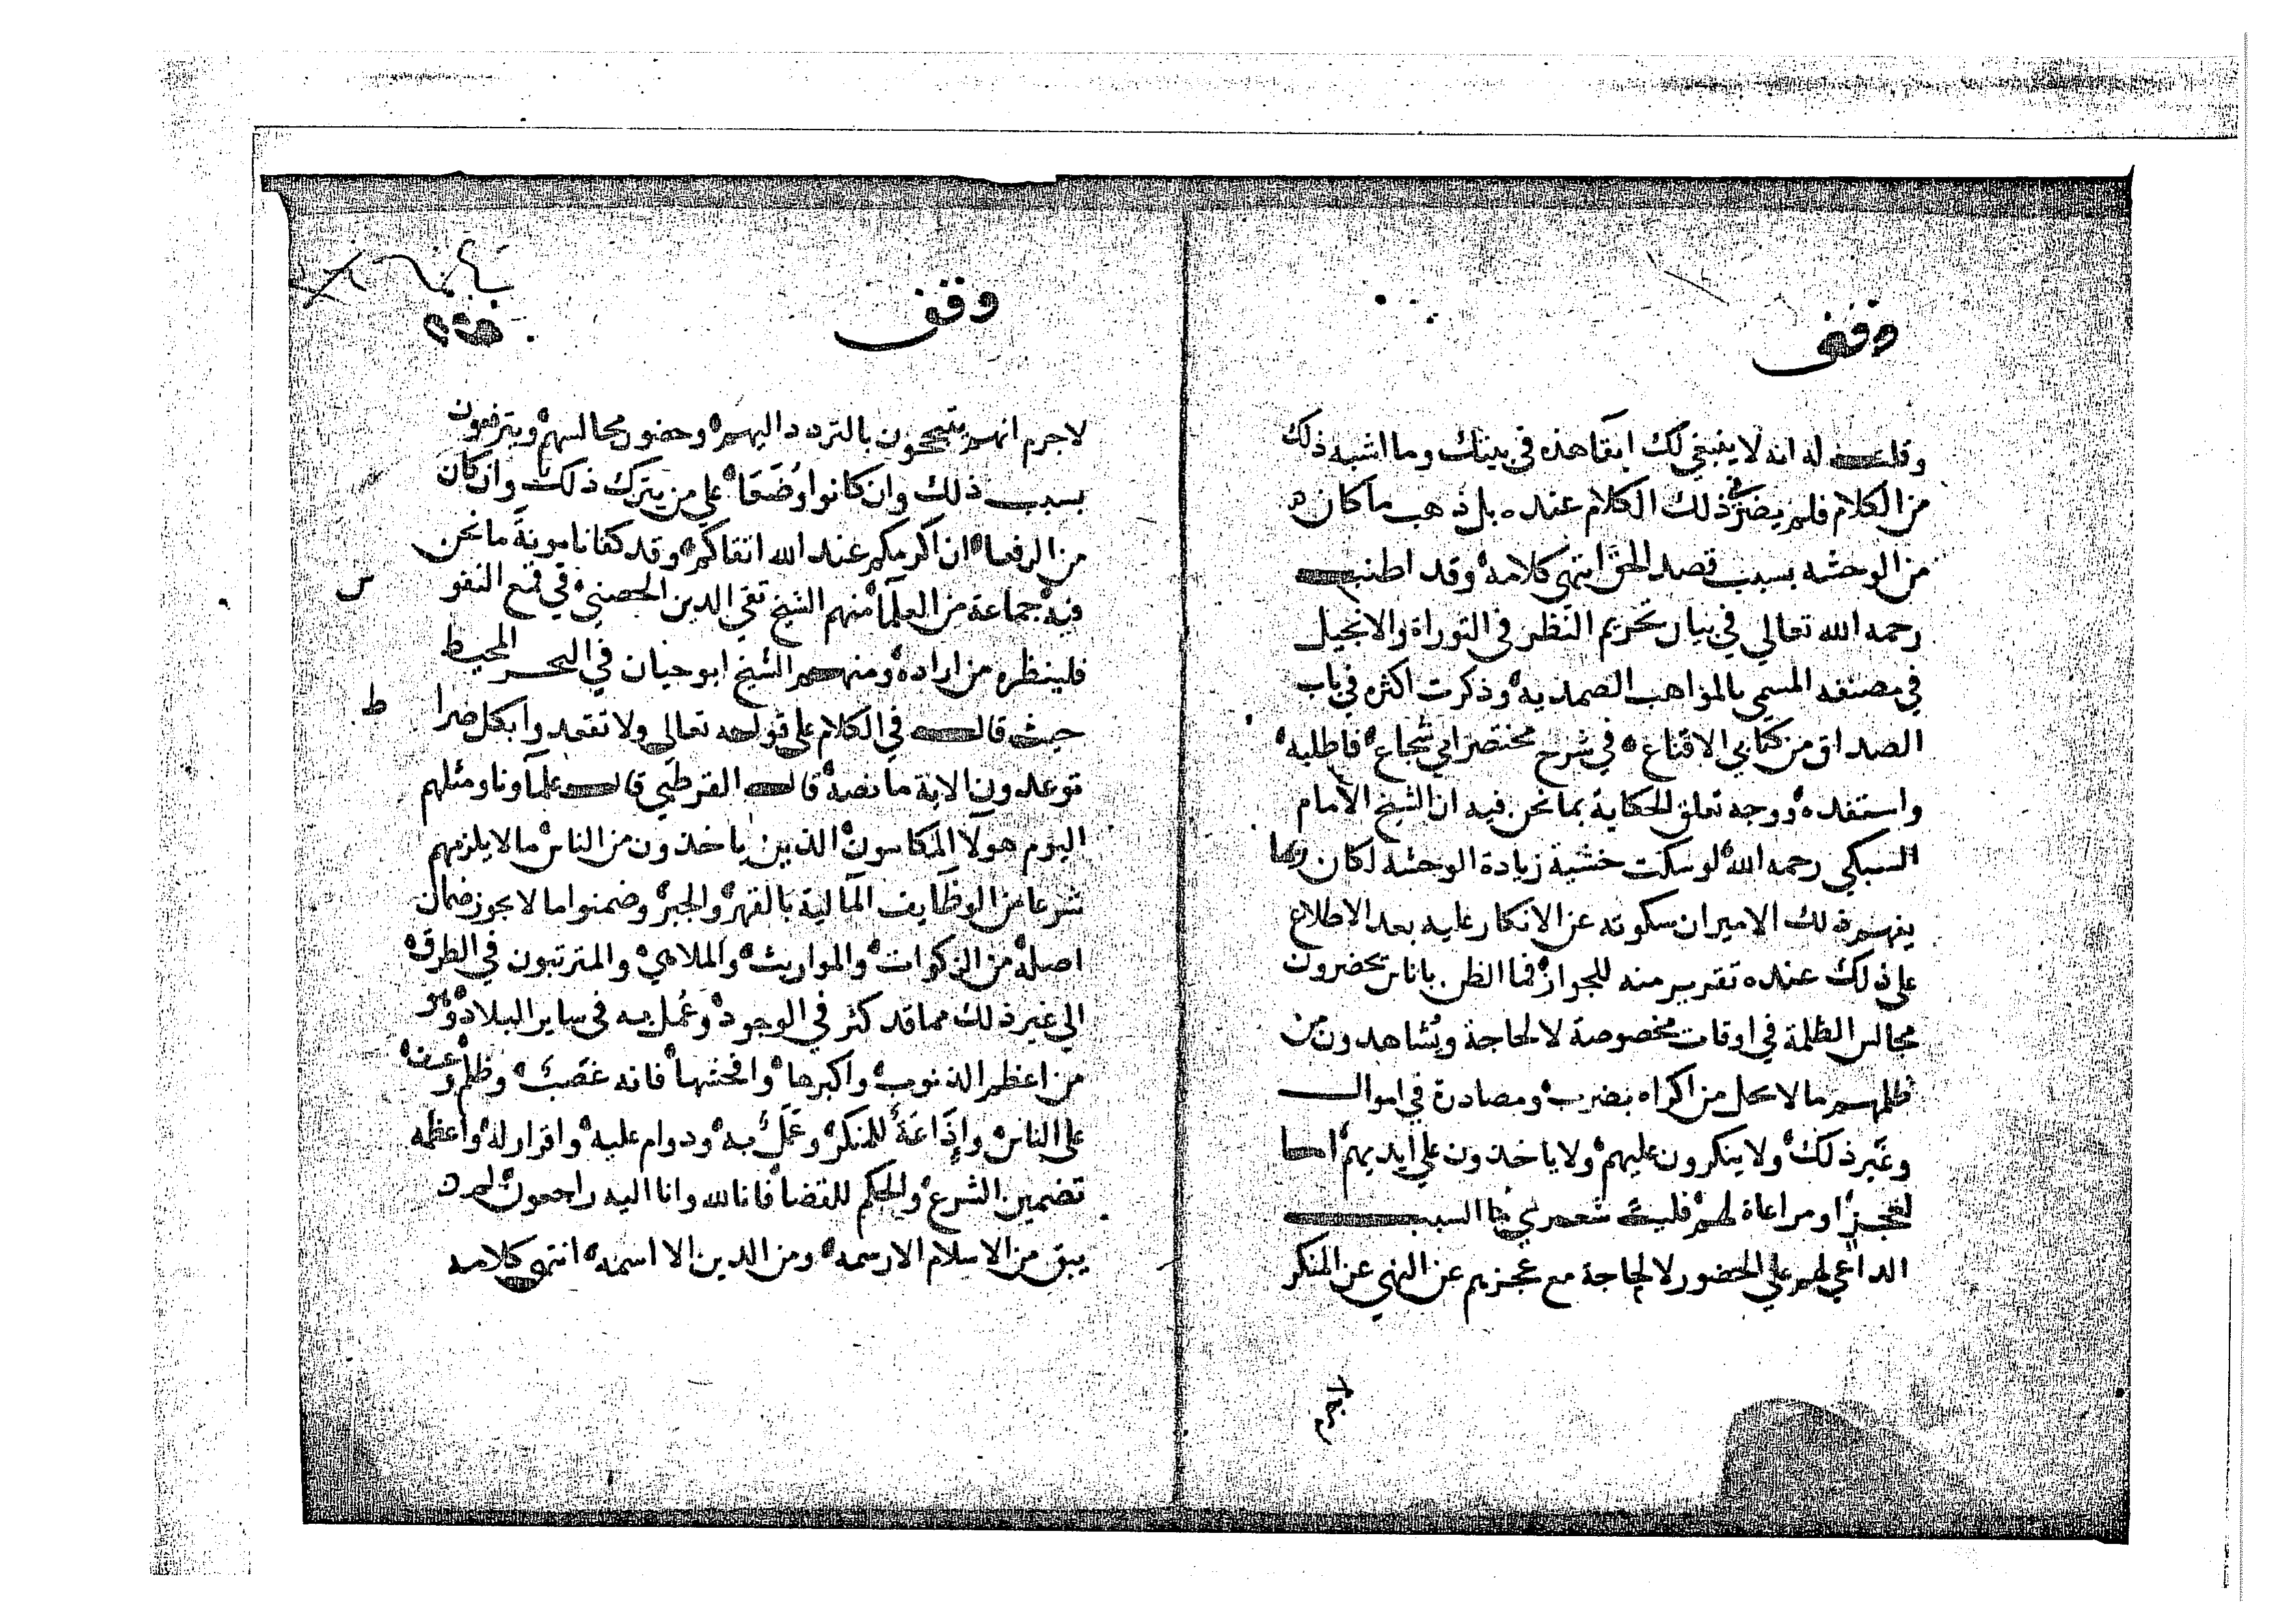 وقف
وقلت له انه لا ينبغي لك ابقا هذه في بيتك وما اشبه ذلك
من الكلام فلم يضر في ذلك الكلام عنده بل ذهب ما كان
من الوحشه بسبب قصد الحق انتهى كلامه وقد اطنب
رحمه الله تعالي في بيان تحريم النظر في التوراة والانجيل
في مصنفه المسمي بالمواهب الصمديه وذكرت اكثره في باب
الصداق من كتابي الاقناع في شرح مختصر ابي شجاع فاطلبه
واستفده ووجه تعلق الحكاية بما نحن فيه ان الشيخ الامام
السبكي رحمه الله لو سكت خشية زيادة الوحشه لكان ربما
يفهم ذلك الامير ان سكوته عن الانكار عليه بعد الاطلاع
على ذلك عنده تقرير منه للجواز فما الظن باناس يحضرون
مجالس الظلمة في اوقات مخصوصة لا لحاجة ويشاهدون من
ظلمهم ما لا يحل من اكراه بضرب ومصادرة في اموال
وغير ذلك ولا ينكرون عليهم ولا ياخذون علي ايديهم اما
لعجز او مراعاة لهم فليت شعري ما السبب
الداعي لهم علي الحضور لا لحاجة مع عجزهم عن النهي عن المنكر
لا جرم
وقف
لا جرم انهم يتبجحون بالتردد اليهم وحضور مجالسهم ويترفعون
بسبب ذلك وان كانوا وضعا علي من يترك ذلك وان كان
من الرفعا ان اكرمكم عند الله اتقاكم وقد كفانا مونة ما نحن
فيه جماعة من العلما منهم الشيخ تقي الدين الحصني في قمع النفو
س
فلينظره من اراده ومنهم الشيخ ابو حيان في البحر المحيط
حيث قال في الكلام على قوله تعالى ولا تقعدوا بكل صرا
ط
توعدون الاية ما نصه قال القرطبي قال علماونا ومثلهم
اليوم هولا المكاسون الذين ياخذون من الناس ما لا يلزمهم
شرعا من الوظايف المالية بالقهر والجبر وضمنوا ما لا يجوز ضمان
اصله من الزكوات والمواريث والملاهي والمترتبون في الطرق
الي غير ذلك مما قد كثر في الوجود وعمل به في ساير البلاد وهو
من اعظم الذنوب واكبرها وافحشها فانه غصب وظلم وعسف
على الناس وإذاعة للمنكر وعمل به ودوام عليه واقرار له واعظمه
تضمين الشرع والحكم للقضا فانا لله وانا اليه راجعون لم
يبق من الاسلام الا رسمه ومن الدين الا اسمه انتهى كلامه